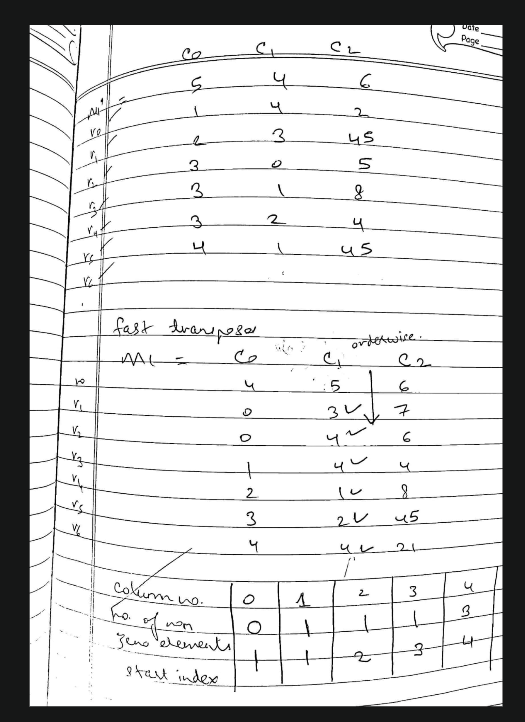 Date
Page
C0 C1 C2
M1' = 5 4 6
r0 1 4 2
r1 2 3 45
r2 3 0 5
r3 3 1 8
r4 3 2 4
r5 4 1 45
r6
fast transpose
orderwise.
M1 = C0 C1 C2
r0 4 5 6
r1 0 3 ✓ 7
r2 0 4 ✓ 6
r3 1 4 ✓ 4
r4 2 1 ✓ 8
r5 3 2 ✓ 45
r6 4 4 ✓ 21
column no. 0 1 2 3 4
no. of non 0 1 1 1 3
zero elements
start index 1 1 2 3 4